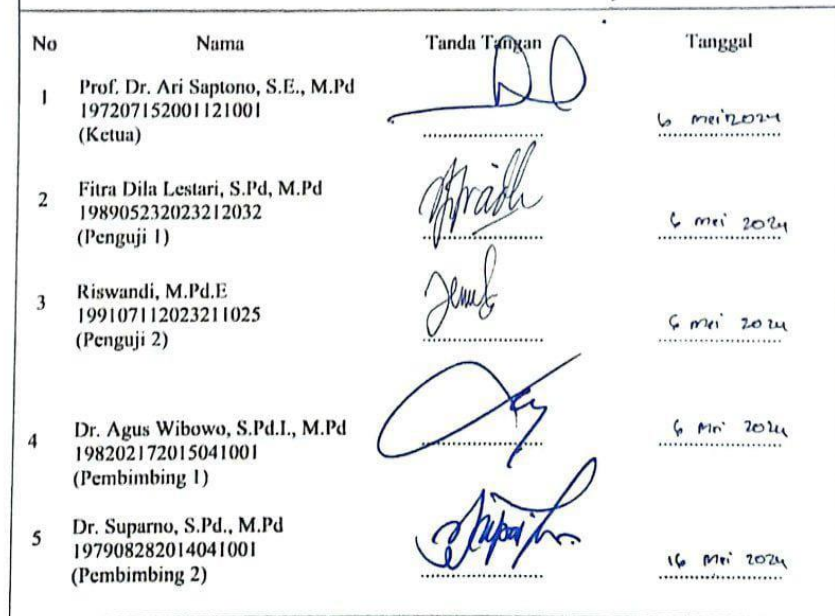 No Nama Tanda Tangan Tanggal
1 Prof. Dr. Ari Saptono, S.E., M.Pd
197207152001121001
(Ketua) 6 mei 2024
2 Fitra Dila Lestari, S.Pd, M.Pd
198905232023212032
(Penguji 1) 6 mei 2024
3 Riswandi, M.Pd.E
199107112023211025
(Penguji 2) 6 mei 2024
4 Dr. Agus Wibowo, S.Pd.I., M.Pd 6 Mei 2024
198202172015041001
(Pembimbing 1)
5 Dr. Suparno, S.Pd., M.Pd
197908282014041001
(Pembimbing 2) 16 Mei 2024